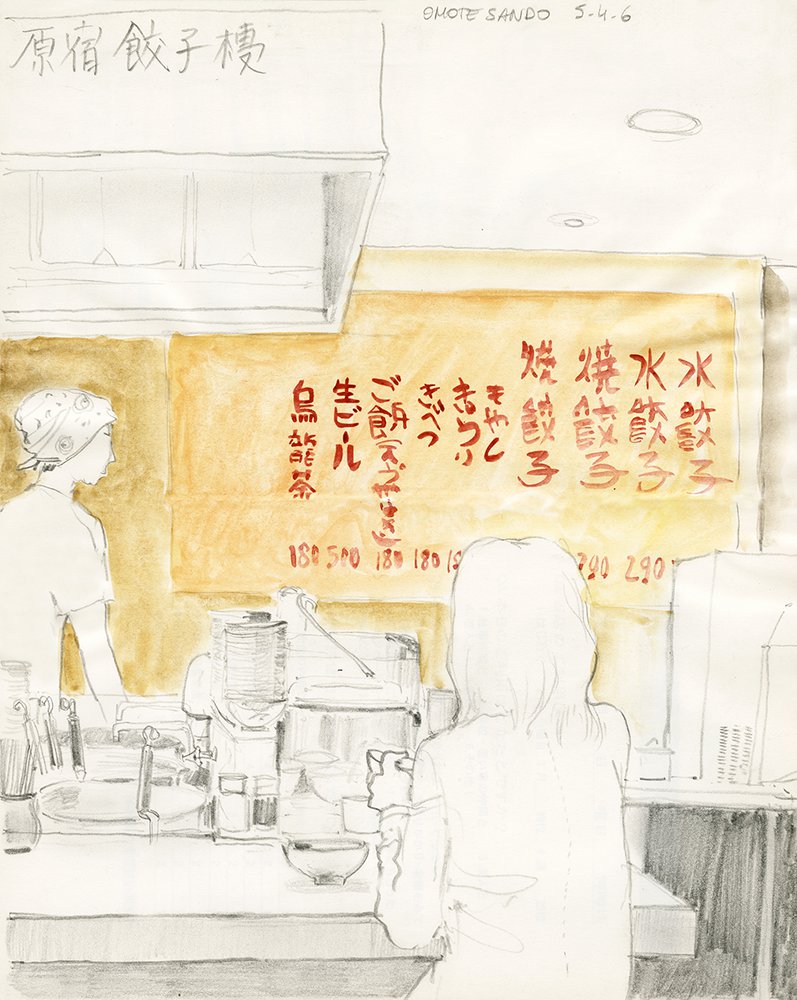 原宿餃子樓
OMOTE SANDO 5-4-6
水餃子
水餃子 290
焼餃子 290
焼餃子
もやし
きゅうり
きゃべつ 180
ご飯 180
生ビール 500
烏龍茶 180